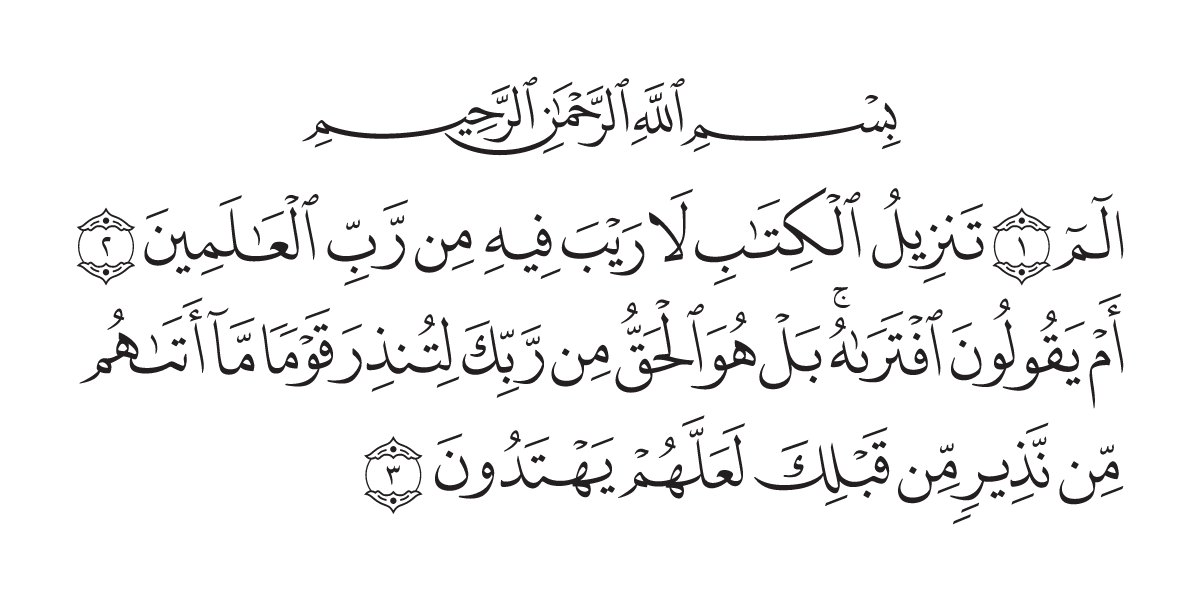 بِسْمِ ٱللَّهِ ٱلرَّحْمَٰنِ ٱلرَّحِيمِ
الٓمٓ ١ تَنزِيلُ ٱلْكِتَٰبِ لَا رَيْبَ فِيهِ مِن رَّبِّ ٱلْعَٰلَمِينَ ٢
أَمْ يَقُولُونَ ٱفْتَرَىٰهُ ۚ بَلْ هُوَ ٱلْحَقُّ مِن رَّبِّكَ لِتُنذِرَ قَوْمًا مَّآ أَتَىٰهُم
مِّن نَّذِيرٍ مِّن قَبْلِكَ لَعَلَّهُمْ يَهْتَدُونَ ٣